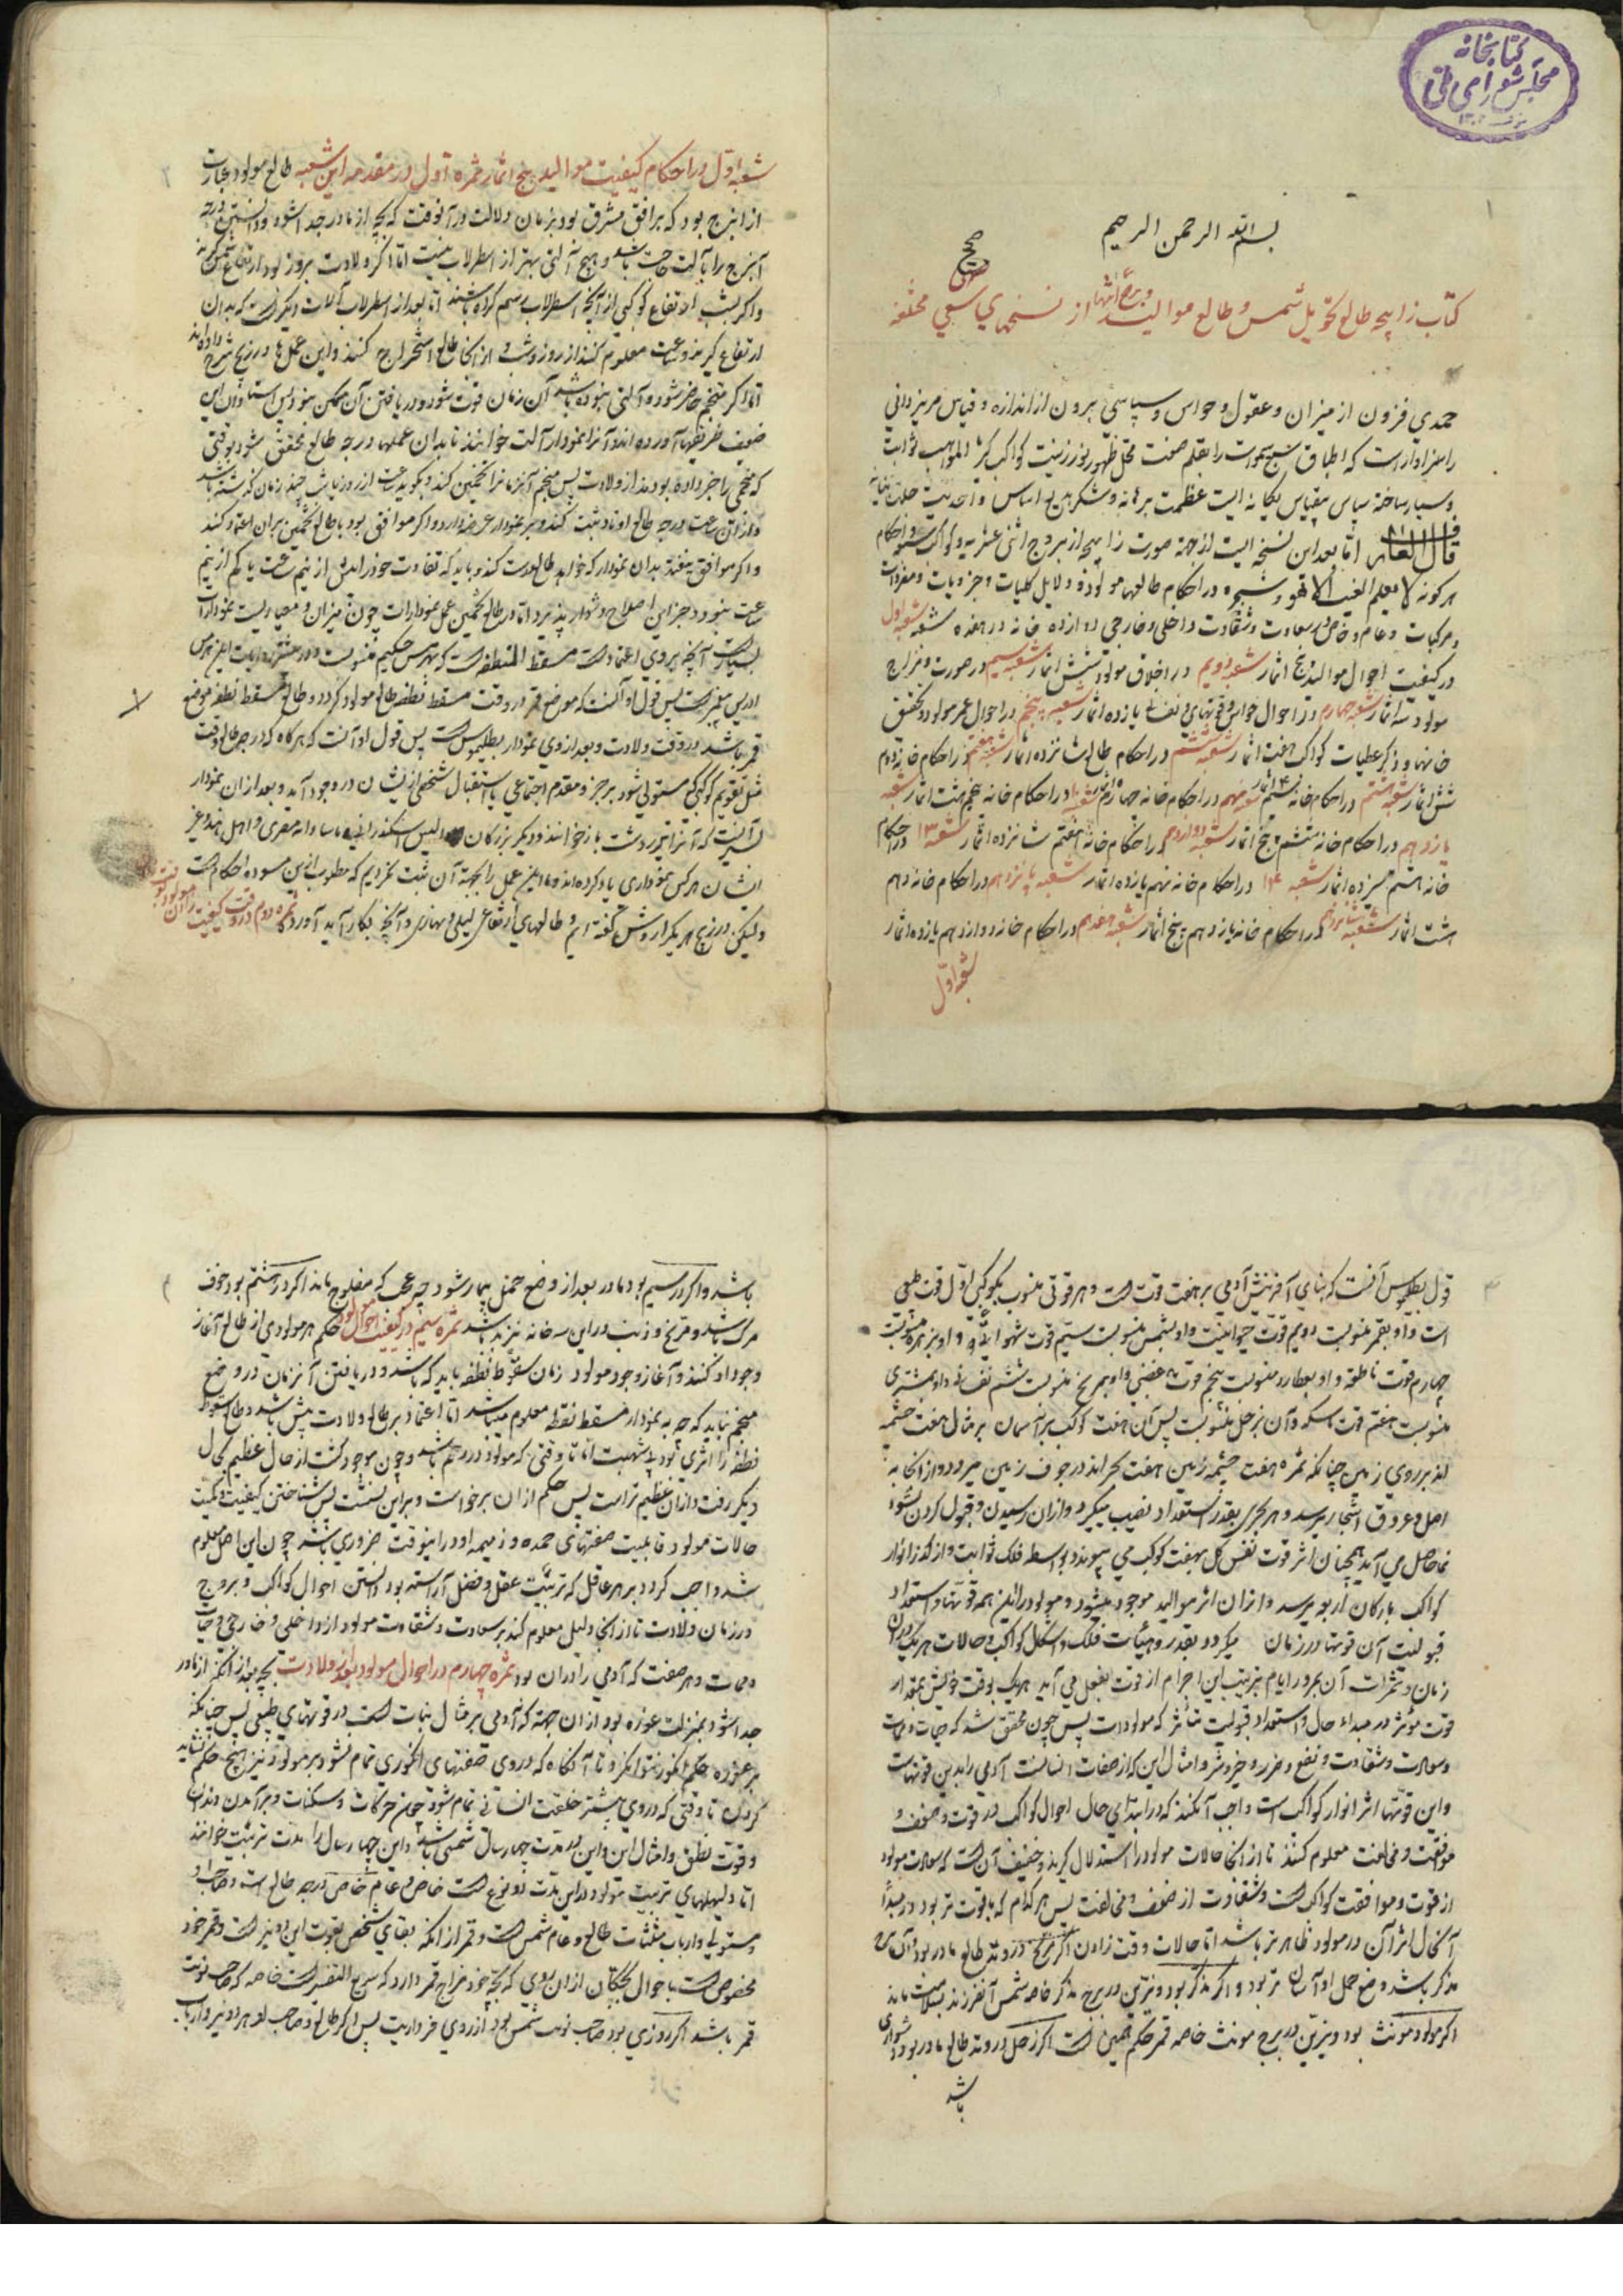 کتابخانه
مجلس شورای ملی
۱
بسم الله الرحمن الرحیم
صح
کتاب زایچه طالع تحویل شمس و طالع موالید و برء انتها از نسخهای سعی مختلفه
حمدی فزون از میزان و عقول و حواس و سپاسی برون از اندازه و قیاس مر یزدانی
را سزاوارست که اطباق سبع سموات را بقلم صنعت محل ظهور نور زینت کواکب کرد
و سپاس بیقیاس یکانه ایست عظمت برهانه و شکر بدیع اساس و احدیت
اما بعد این نسخه ایست از جهة صورت زایچه از بروج اثنی عشریه و کواکب و احکام
هرکونه لا یعلم الغیب الا هو و شجره در احکام طالعهاء مولود و دلایل کلیات و جزویات و مفردات
و مرکبات و عام و خاص و سعادت و شقاوت داخلی و خارجی دوازده خانه در هفده شعبه شعبه اول
در کیفیت احوال موالید پنج اثمار شعبه دویم در اخلاق مولود شش اثمار شعبه سیم در صورت و مزاج
مولود سه اثمار شعبه چهارم در احوال حواس و قوتهای نفسانی یازده اثمار شعبه پنجم در احوال عمر مولود و تحقیق
خانها و ذکر عطیات کواکب هفت اثمار شعبه ششم در احکام طالع شانزده اثمار شعبه هفتم در احکام خانه دوم
شش اثمار شعبه هشتم در احکام خانه سیم ۴ اثمار شعبه نهم در احکام خانه چهارم اثمار شعبه ۱۰ در احکام خانه پنجم هشت اثمار شعبه
یازدهم در احکام خانه ششم پنج اثمار شعبه دوازدهم در احکام خانه هفتم شانزده اثمار شعبه ۱۳ در احکام
خانه هشتم سیزده اثمار شعبه ۱۴ در احکام خانه نهم یازده اثمار شعبه پانزدهم در احکام خانه دهم
هشت اثمار شعبه شانزدهم در احکام خانه یازدهم پنج اثمار شعبه هفدهم در احکام خانه دوازدهم یازده اثمار
شعبه اول
۲
شعبه اول در احکام کیفیت موالید پنج اثمار ثمره اول در مقدمه این شعبه طالع مولود عبارت
از ان برج بود که بر افق مشرق بود بزمان ولادت در آنوقت که بچه از مادر جدا شود و دانستن درجه
آن برج را بآلت حاجت باشد و هیچ آلتی بهتر از اسطرلاب نیست اما اکر ولادت بروز بود ارتفاع شمس کیرند
و اکر بشب ارتفاع کوکبی از آنچه بر اسطرلاب رسم کرده باشند اما بعد از اسطرلاب آلات دیکرست که بدان
ارتفاع کیرند و ساعت معلوم کنند از روز و شب و از آنجا طالع استخراج کنند و این عملها در زیج شرح داده اند
اما اکر منجم حاضر نشود و آلتی نبوده باشد آن زمان فوت شود و دریافتن آن ممکن نبود پس استادان این
ضعیف طریقها آورده اند و آنرا نمودار آلت خوانند تا بدان عملها درجه طالع محقق شود بوقتی
که منجمی را خبر داده بودند از ولادت پس منجم آن زمانرا تخمین کند و بکوید ساعت از روز یا شب چند زمان کذشته باشد
و ازان ساعت درجه طالع و اوتاد ثبت کند و بر نمودار عرضه دارد و اکر موافق بود با طالع تخمین بران اعتماد کند
و اکر موافق نیفتد بدان نمودار که خواهد طالع درست کند و باید که تفاوت از نیم ساعت یا کم از نیم
ساعت نبود و جز این اصلاح دشوار پذیرد اما در طالع تخمین عمل نمودارات چون میزان و معیاریست نمودارات
بسیارست آنچه بروی اعتمادست مسقط النطفه است که بهرمس حکیم منسوبست
ادریس پیغمبرست پس قول او آنست که موضع قمر در وقت مسقط نطفه طالع مولود کردد و طالع مسقط نطفه موضع
قمر باشد در وقت ولادت و بعد از وی نمودار بطلیموس است پس قول او آنست که هرکاه که درجه طالع وقت
مثل تقویم کوکبی مستولی شود بر جزو مقدم اجتماعی یا استقبال شخصی از ایشان در وجود آید و بعد از ان نمودار
ایشان هر کس نموداری یاد کرده اند و ما این عمل را بجهة آن ثبت نکردیم که مطلوب ازین مسوده احکام است
و لیکن در زیج هر یک را روشن کفته ایم و طالعهای ارتفاعی لیلی و نهاری و آنچه بکار آید آورده ثمره دوم در وقت کیفیت زادن مولود
۳
قول بطلمیوس آنست که بنای آفرینش آدمی بر هفت قوت است و هر قوتی منسوب بکوکبی اول قوت طبیعی
است و او بقمر منسوبست دویم قوت حیوانیست و او بشمس منسوبست سیم قوت شهوانیه و او بزهره منسوبست
چهارم قوت ناطقه و او بعطارد منسوبست پنجم قوت غضبی و او بمریخ منسوبست ششم نفسانی و او بمشتری
منسوبست هفتم قوت ماسکه و آن بزحل منسوبست پس آن هفت کوکب بر آسمان بر مثال هفت چشمه
اند بر روی زمین چنانکه ثمره هفت چشمه زمین هفت بحر اند در جوف زمین میرود و از آنجا به
اصل و عروق اشجار میرسد و هر شجری بقدر استعداد نصیب میکیرد و ازان رسیدن و قبول کردن نشو و
نما حاصل می آید همچنان اثر قوت نفس کل بهفت کوکب می پیوندد بواسطه فلک ثوابت و از کذر انوار
کواکب بارکان اربعه میرسد و ازان اثر موالید موجود میشود و مولود را این همه قوتها و استعداد
قبولیت آن قوتها در زمان میکردد بقدر و هیئات فلک و اشکال کواکب و حالات هر یک در آن
زمان و ثمرات آن بمرور ایام بترتیب این اجرام از قوت بفعل می آید هر یک بوقت خویش بمقدار
قوت مؤثر در مبداء حال و استعداد قبولیت متأثر که مولودات پس چون محقق شد که حیات و ممات
و سعادت و شقاوت و نفع و ضرر و خیر و شر و امثال این که از صفات انسانست آدمی را بدین قوتهاست
و این قوتها اثر انوار کواکب است واجب آنکند که در ابتدای حال احوال کواکب در قوت و ضعف و
موافقت و مخالفت معلوم کنند تا از آنجا حالات مولود را استدلال کیرند و حقیقت آن است که سعادت مولود
از قوت و موافقت کواکب است و شقاوت از ضعف و مخالفت پس هر کدام که باقوت تر بود در مبداء
آنحال اثر آن در مولود ظاهرتر باشد اما حالات وقت زادن اکر مریخ در وتد طالع مادر بود
مذکر باشد وضع حمل او آسان تر بود و اکر مذکر بود و نیرین در برج مذکر خاصه شمس آن فرزند بسلامت ماند
اکر مولود مونث بود و نیرین در برج مونث خاصه قمر حکم همین است اکر زحل در وتد طالع مادر بود دشواری
باشد
۴
باشد و اکر در سیم بود مادر بعد از وضع حمل بیمار شود چه عجب که مفلوج ماند اکر در هشتم بود خوف
مرک باشد و مریخ و ذنب در این سه خانه نیز بد باشد ثمره سیم در کیفیت احوال مولود حکم هر مولودی از طالع آغاز
وجود او کنند و آغاز وجود مولود زمان سقوط نطفه باید که باشد و دریافتن آن زمان در وضع
منجم نیاید که چه به نمودار مسقط نطفه معلوم میباشد اما اعتماد بر طالع ولادت بیش باشد و طالع سقوط
نطفه را اثری بود بلا شبهت اما تا وقتی که مولود در رحم باشد و چون موجود کشت از حال عظیم بحال
دیکر رفت و ازان عظیم تر است پس حکم ازان برخواست و بر این نشست پس شناختن کیفیت و کمیت
حالات مولود قابلیت صفتهای حمیده و ذمیمه او درین وقت ضروری باشد چون این اصل معلوم
شد واجب کردد بر هر عاقل که تربیت عقل و فضل آراسته بود دانستن احوال کواکب و بروج
در زمان ولادت تا از آنجا دلیل معلوم کند بر سعادت و شقاوت مولود از داخلی و خارجی و حیات
و ممات و هر صفت که آدمی را دران بود ثمره چهارم در احوال مولود بعد از ولادت بچه بعد از آنکه از مادر
جدا شود بمنزلت غوره بود از ان جهة که آدمی بر مثال نبات است در قوتهای طبیعی پس چنانکه
بر غوره حکم انکور نتوان کرد تا آنکاه که در وی صفتهای انکوری تمام نشود بر مولود نیز هیچ حکم نشاید
کردن تا وقتی که در وی بیشتر خلقت انسانی تمام شود چون حرکات و سکنات و برآمدن دندان
و قوت نطق و امثال این و این در مدت چهار سال شمسی باشد و این چهار سال را مدت تربیت خوانند
اما دلیلهای تربیت مولود در این مدت دو نوع است خاص و عام خاص درجه طالع است و صاحب او
و مستولی و ارباب مثلثات طالع و عام شمس است و قمر از آنکه بقای شخص بقوت این دو نیر است و قمر خود
مخصوص است باحوال بچکان از ان روی که بچه خود مزاج قمر دارد که سریع التغییر است خاصه که صاحب نوبت
قمر باشد اکر روزی بود صاحب نوبت شمس بود از روی فرداریت پس اکر طالع و صاحب او و هر دو نیر و ارباب